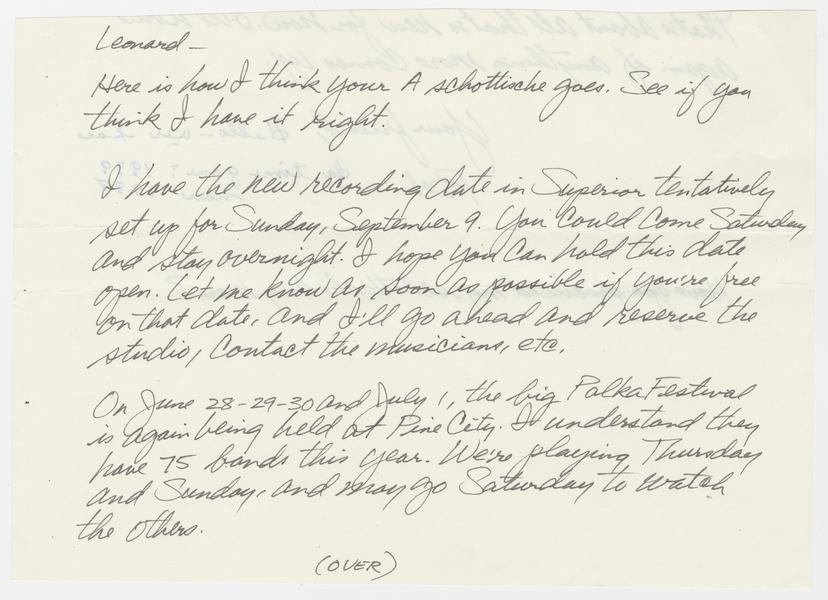 Leonard—
Here is how I think your A schottische goes. See if you
think I have it right.
I have the new recording date in Superior tentatively
set up for Sunday, September 9. You could come Saturday
and stay overnight. I hope you can hold this date
open. Let me know as soon as possible if you're free
on that date, and I'll go ahead and reserve the
studio, contact the musicians, etc.
On June 28-29-30 and July 1, the big Polka Festival
is again being held at Pine City. I understand they
have 75 bands this year. We're playing Thursday
and Sunday, and may go Saturday to watch
the others.
(OVER)